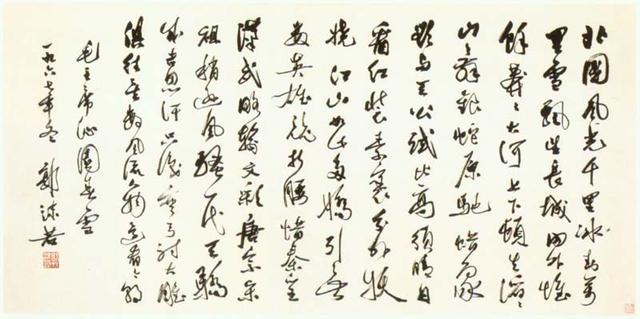 北國風光千里冰封萬
里雪飄望長城內外惟
餘莽〻大河上下頓失滔〻
山舞銀蛇原馳蠟象
欲與天公試比高須晴日
看紅裝素裹分外妖
嬈江山如此多嬌引無
數英雄競折腰惜秦皇
漢武略輸文彩唐宗宋
祖稍遜風騷一代天驕
成吉思汗只識彎弓射大雕
俱往矣數風流人物還看今朝
毛主席沁園春雪
一九六七年冬 郭沫若